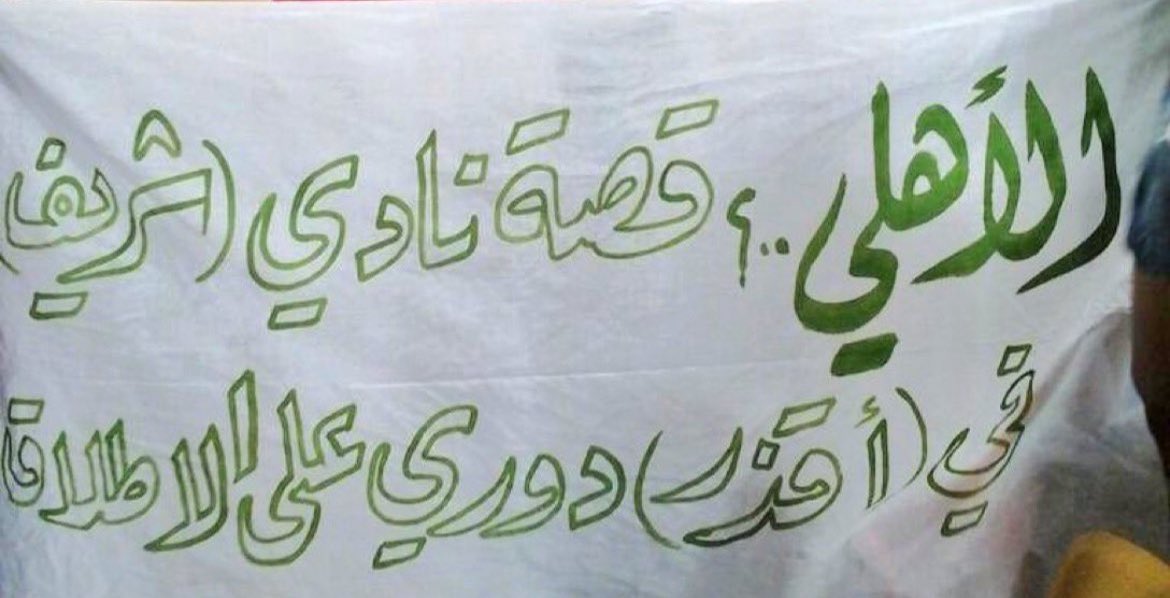 الأهلي .. ، قصة نادي (شريف
في (أقذر) دوري على الاطلاق